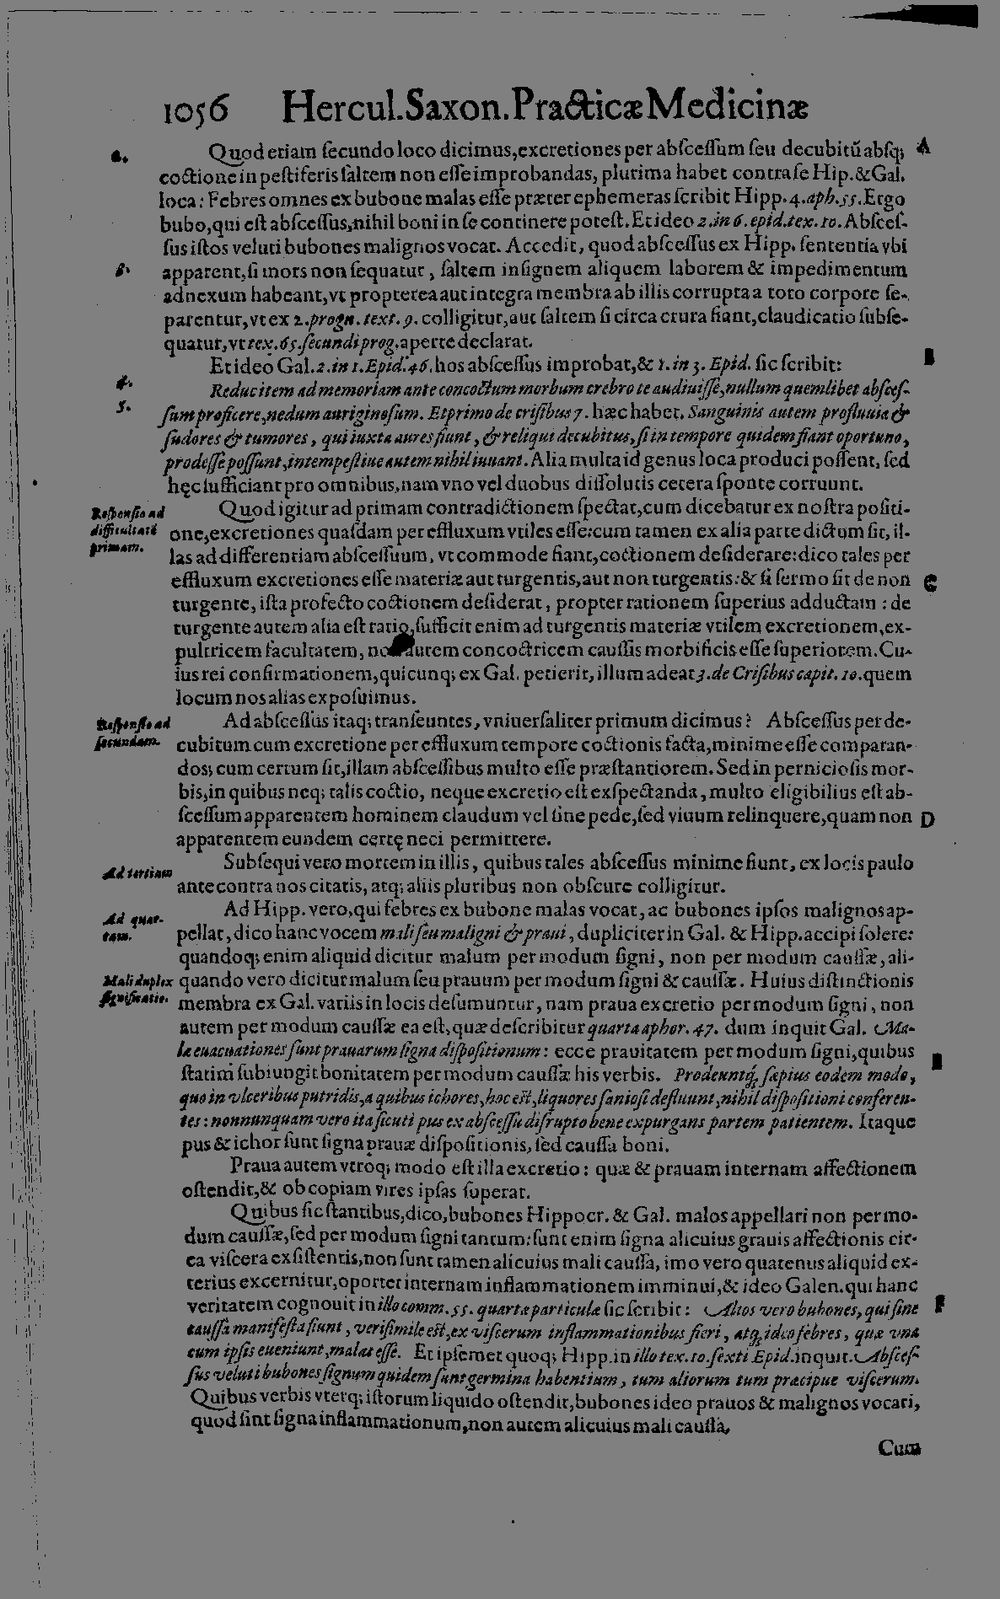 1056 Hercul.Saxon.Practicæ Medicinæ
Quod etiam ſecundo loco dicimus, excretiones per abſceſſum ſeu decubitũ abſq; A
coctione in peſtiferis ſaltem non eſſe improbandas, plurima habet contra ſe Hip. & Gal.
loca: Febres omnes ex bubone malas eſſe præter ephemeras ſcribit Hipp. 4. aph. 55. Ergo
bubo, qui eſt abſceſſus, nihil boni in ſe continere poteſt. Et ideo 2. in 6. epid. tex. 10. Abſceſ-
ſus iſtos veluti bubones malignos vocat. Accedit, quod abſceſſus ex Hipp. ſententia vbi
apparent, ſi mors non ſequatur, ſaltem inſignem aliquem laborem & impedimentum
adnexum habeant, vt propterea aut integra membra ab illis corrupta a toto corpore ſe-
parentur, vt ex 2. progn. text. 9. colligitur, aut ſaltem ſi circa crura fiant, claudicatio ſubſe-
quatur, vt tex. 65. ſecundi prog. aperte declarat.
Et ideo Gal. 2. in 1. Epid. 46. hos abſceſſus improbat, & 1. in 3. Epid. ſic ſcribit:
4. Reduc item ad memoriam ante concoctum morbum crebro te audiuiſſe, nullum quemlibet abſceſ-
5. ſum proficere, nedum auriginoſum. Et primo de criſibus 7. hæc habet. Sanguinis autem profluuia &
ſudores & tumores, qui iuxta aures fiunt, & reliqui decubitus, ſi in tempore quidem fiant oportuno,
prodeſſe poſſunt, intempeſtiue autem nihil iuuant. Alia multa id genus loca produci poſſent, ſed
hęc ſufficiant pro omnibus, nam vno vel duobus diſſolutis cetera ſponte corruunt.
Reſponſio ad
difficultatē
primam.
Quod igitur ad primam contradictionem ſpectat, cum dicebatur ex noſtra poſiti-
one, excretiones quaſdam per effluxum vtiles eſſe: cum tamen ex alia parte dictum ſit, il-
las ad differentiam abſceſſuum, vt commode fiant, coctionem deſiderare: dico tales per
effluxum excretiones eſſe materiæ aut turgentis, aut non turgentis: & ſi ſermo ſit de non C
turgente, iſta profecto coctionem deſiderat, propter rationem ſuperius adductam: de
turgente autem alia eſt ratio, ſufficit enim ad turgentis materiæ vtilem excretionem, ex-
pultricem facultatem, autem concoctricem cauſſis morbificis eſſe ſuperiorem. Cu-
ius rei confirmationem, quicunq; ex Gal. petierit, illum adeat 3. de Criſibus capit. 10. quem
locum nos alias expoſuimus.
Reſponſio ad
ſecundam.
Ad abſceſſus itaq; tranſeuntes, vniuerſaliter primum dicimus? Abſceſſus per de-
cubitum cum excretione per effluxum tempore coctionis facta, minime eſſe comparan-
dos; cum certum ſit, illam abſceſſibus multo eſſe præſtantiorem. Sed in pernicioſis mor-
bis, in quibus neq; talis coctio, neque excretio eſt exſpectanda, multo eligibilius eſt ab-
ſceſſum apparentem hominem claudum vel ſine pede, ſed viuum relinquere, quam non D
apparentem eundem certę neci permittere.
Ad tertiam
Subſequi vero mortem in illis, quibus tales abſceſſus minime fiunt, ex locis paulo
ante contra nos citatis, atq; aliis pluribus non obſcure colligitur.
Ad quar-
tam.
Ad Hipp. vero, qui febres ex bubone malas vocat, ac bubones ipſos malignos ap-
pellat, dico hanc vocem mali ſeu maligni & praui, dupliciter in Gal. & Hipp. accipi ſolere:
quandoq; enim aliquid dicitur malum per modum ſigni, non per modum cauſſæ, ali-
Mali duplex
ſignificatio.
quando vero dicitur malum ſeu prauum per modum ſigni & cauſſæ. Huius diſtinctionis
membra ex Gal. variis in locis deſumuntur, nam praua excretio per modum ſigni, non
autem per modum cauſſæ ea eſt, quæ deſcribitur quarta aphor. 47. dum inquit Gal. Ma-
læ euacuationes ſunt prauarum ſigna diſpoſitionum: ecce prauitatem per modum ſigni, quibus
ſtatim ſubiungit bonitatem per modum cauſſæ his verbis. Prodeuntq; ſæpius eodem modo,
quo in vlceribus putridis, a quibus ichores, hoc eſt, liquores ſanioſi defluunt, nihil diſpoſitioni conferen-
tes: nonnunquam vero ita ſicuti pus ex abſceſſu diſrupto bene expurgans partem patientem. Itaque
pus & ichor ſunt ſigna prauæ diſpoſitionis, ſed cauſſa boni.
Praua autem vtroq; modo eſt illa excretio: quæ & prauam internam affectionem
oſtendit, & ob copiam vires ipſas ſuperat.
Quibus ſic ſtantibus, dico, bubones Hippocr. & Gal. malos appellari non per mo-
dum cauſſæ, ſed per modum ſigni tantum: ſunt enim ſigna alicuius grauis affectionis cir-
ca viſcera exſiſtentis, non ſunt tamen alicuius mali cauſſa, imo vero quatenus aliquid ex-
terius excernitur, oportet internam inflammationem imminui, & ideo Galen. qui hanc
veritatem cognouit in illo comm. 55. quartæ particulæ ſic ſcribit: Altos vero bubones, qui ſine F
cauſſa manifeſta fiunt, veriſimile eſt, ex viſcerum inflammationibus fieri, atq; ideo febres, quæ vna
cum ipſis eueniunt, malas eſſe. Et ipſemet quoq; Hipp. in illo tex. 10. ſexti Epid. inquit. Abſceſ-
ſus veluti bubones ſignum quidem ſunt germina habentium, tum aliorum tum præcipue viſcerum.
Quibus verbis vterq; iſtorum liquido oſtendit, bubones ideo prauos & malignos vocari,
quod ſint ſigna inflammationum, non autem alicuius mali cauſſa,
Cum